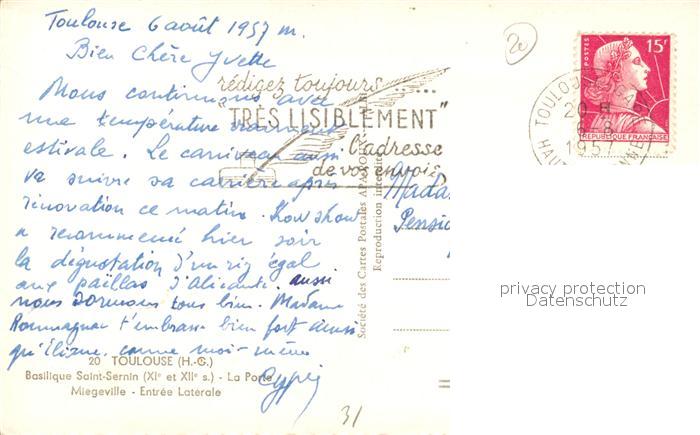 Toulouse 6 août 1957 m.
Bien Chère Yvette
Nous continuons avec
une température vraiment
estivale. Le caniveau aussi
va suivre sa carrière après
rénovation ce matin.
a recommencé hier soir
la dégustation d'un riz égal
aux paëllas d'Alicante. aussi
nous dormons tous bien. Madame
t'embrasse bien fort ainsi
qu' comme moi-même
20 TOULOUSE (H.-G.)
Basilique Saint-Sernin (XIe et XIIe s.) - La Porte
Miegeville - Entrée Latérale
31
rédigez toujours ......
"TRÈS LISIBLEMENT"
l'adresse
de vos envois
Société des Cartes Postales APA-POUX
Reproduction interdite
2e
POSTES
15F
REPUBLIQUE FRANÇAISE
TOULOUSE
20 H
6-8
1957
HAUTE GARONNE
Madame
Pension
privacy protection
Datenschutz